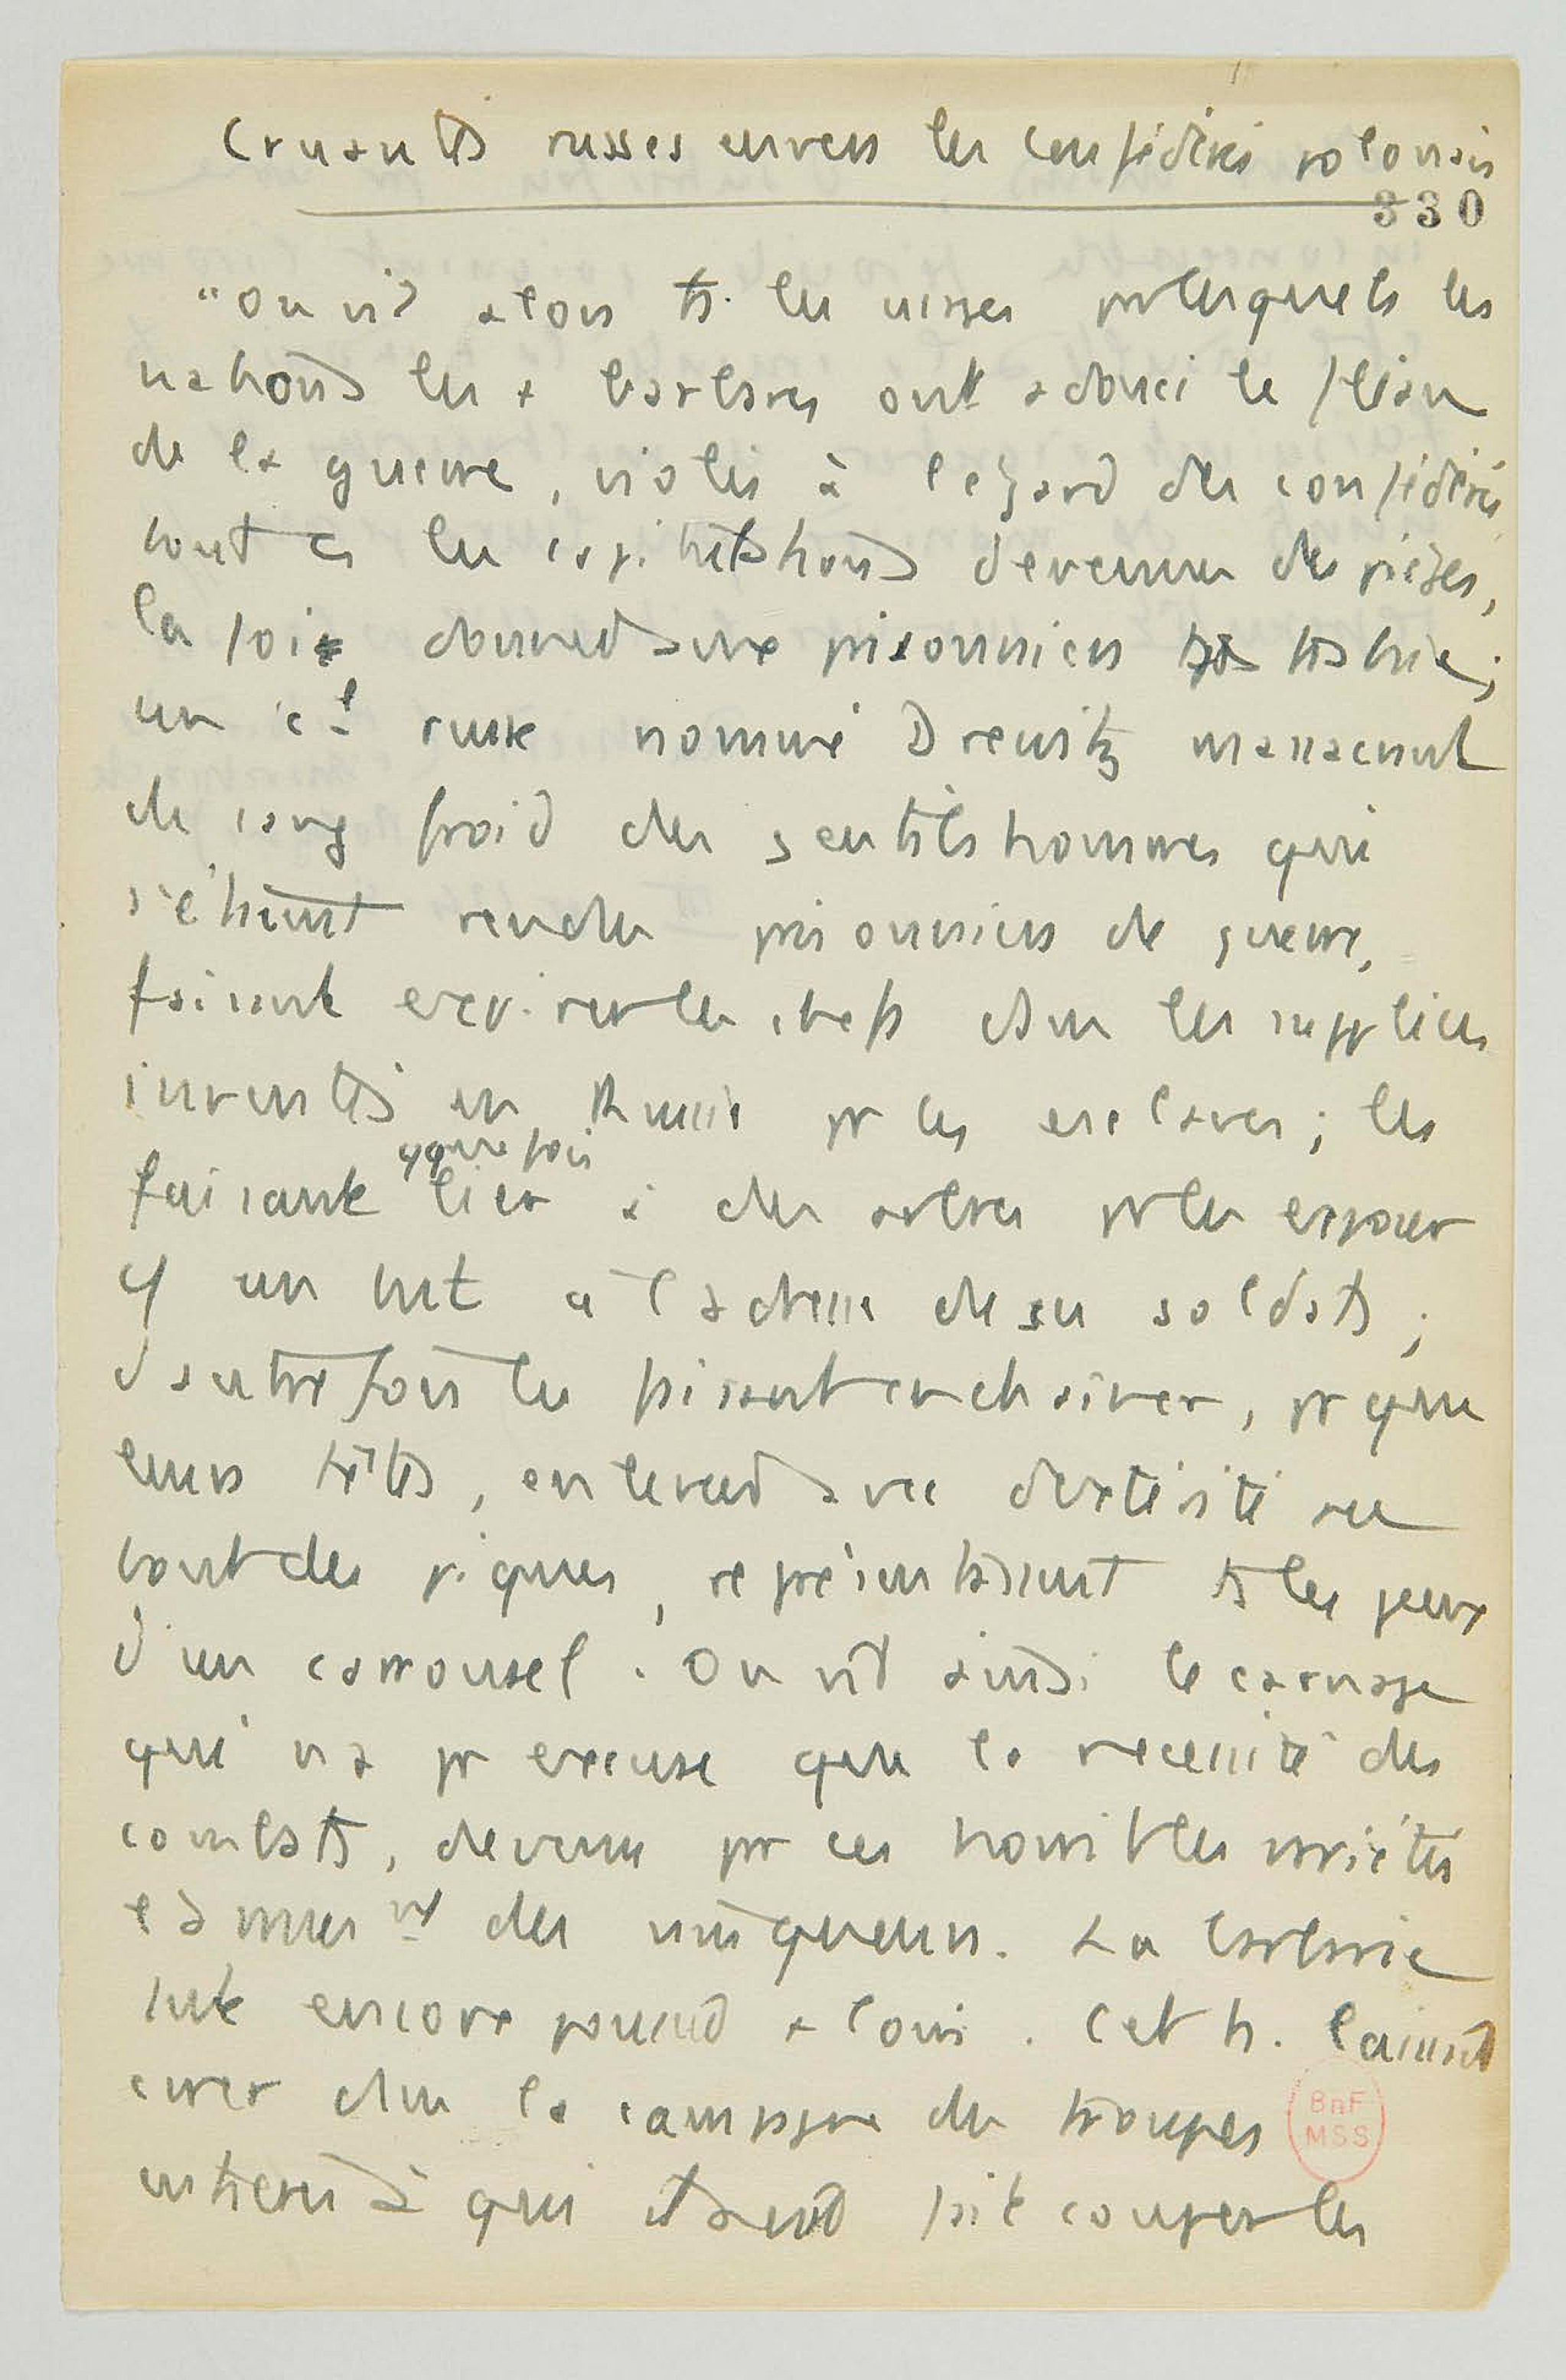 Cruautés russes envers les confédérés polonais
330
"On vit alors ts. les usages par lesquels les
nations les + barbares ont adouci le fléau
de la guerre, violés à l'égard des confédérés
toutes les capitulations devenues des pièges,
la foi donnée aux prisonniers trahie;
un cel russe nommé Drewitz massacrant
de sang froid des gentilshommes qui
s'étaient rendus prisonniers de guerre,
faisant expirer les chefs dans les supplices
inventés en Russie pr les esclaves; les
faisant qquefois lier à des arbres pr les exposer
cô un but à l'adresse de ses soldats;
d'autrefois les faisant enchaîner, pr que
leurs têtes, enlevées avec dextérité au
bout des piques, représentassent ts les jeux
d'un carrousel. On vit ainsi le carnage
qui n'a pr excuse que la nécessité des
combats, devenu par ces horribles variétés
l'amusemt des vainqueurs. La barbarie
fut encore poussée + loin. Cet h. laissait
errer dans la campagne des troupes
entières à qui il avait fait couper les
BnF
MSS